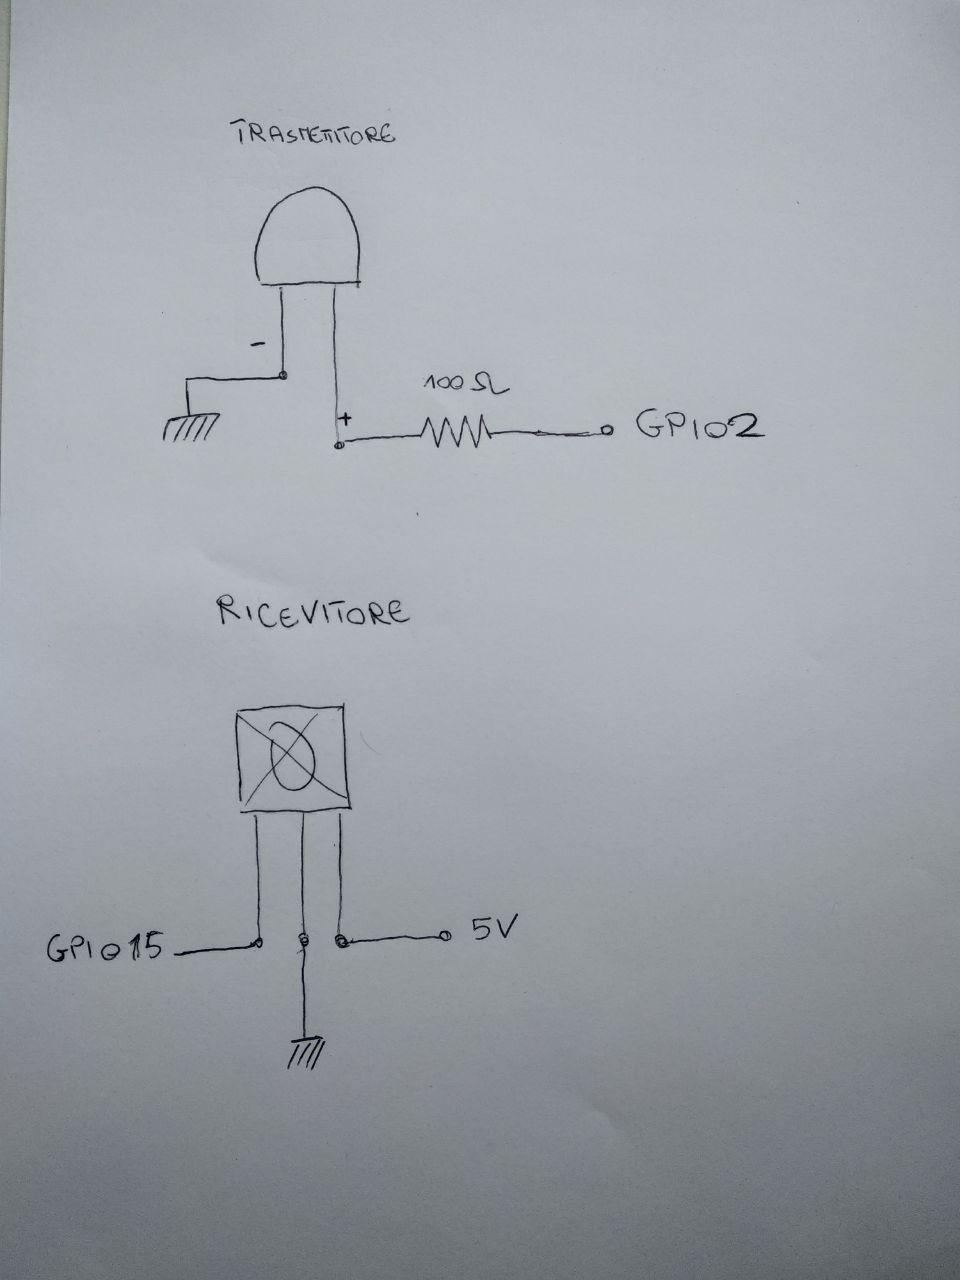 TRASMETTITORE
-
+
100 Ω
GPIO2
RICEVITORE
GPIO15
5V